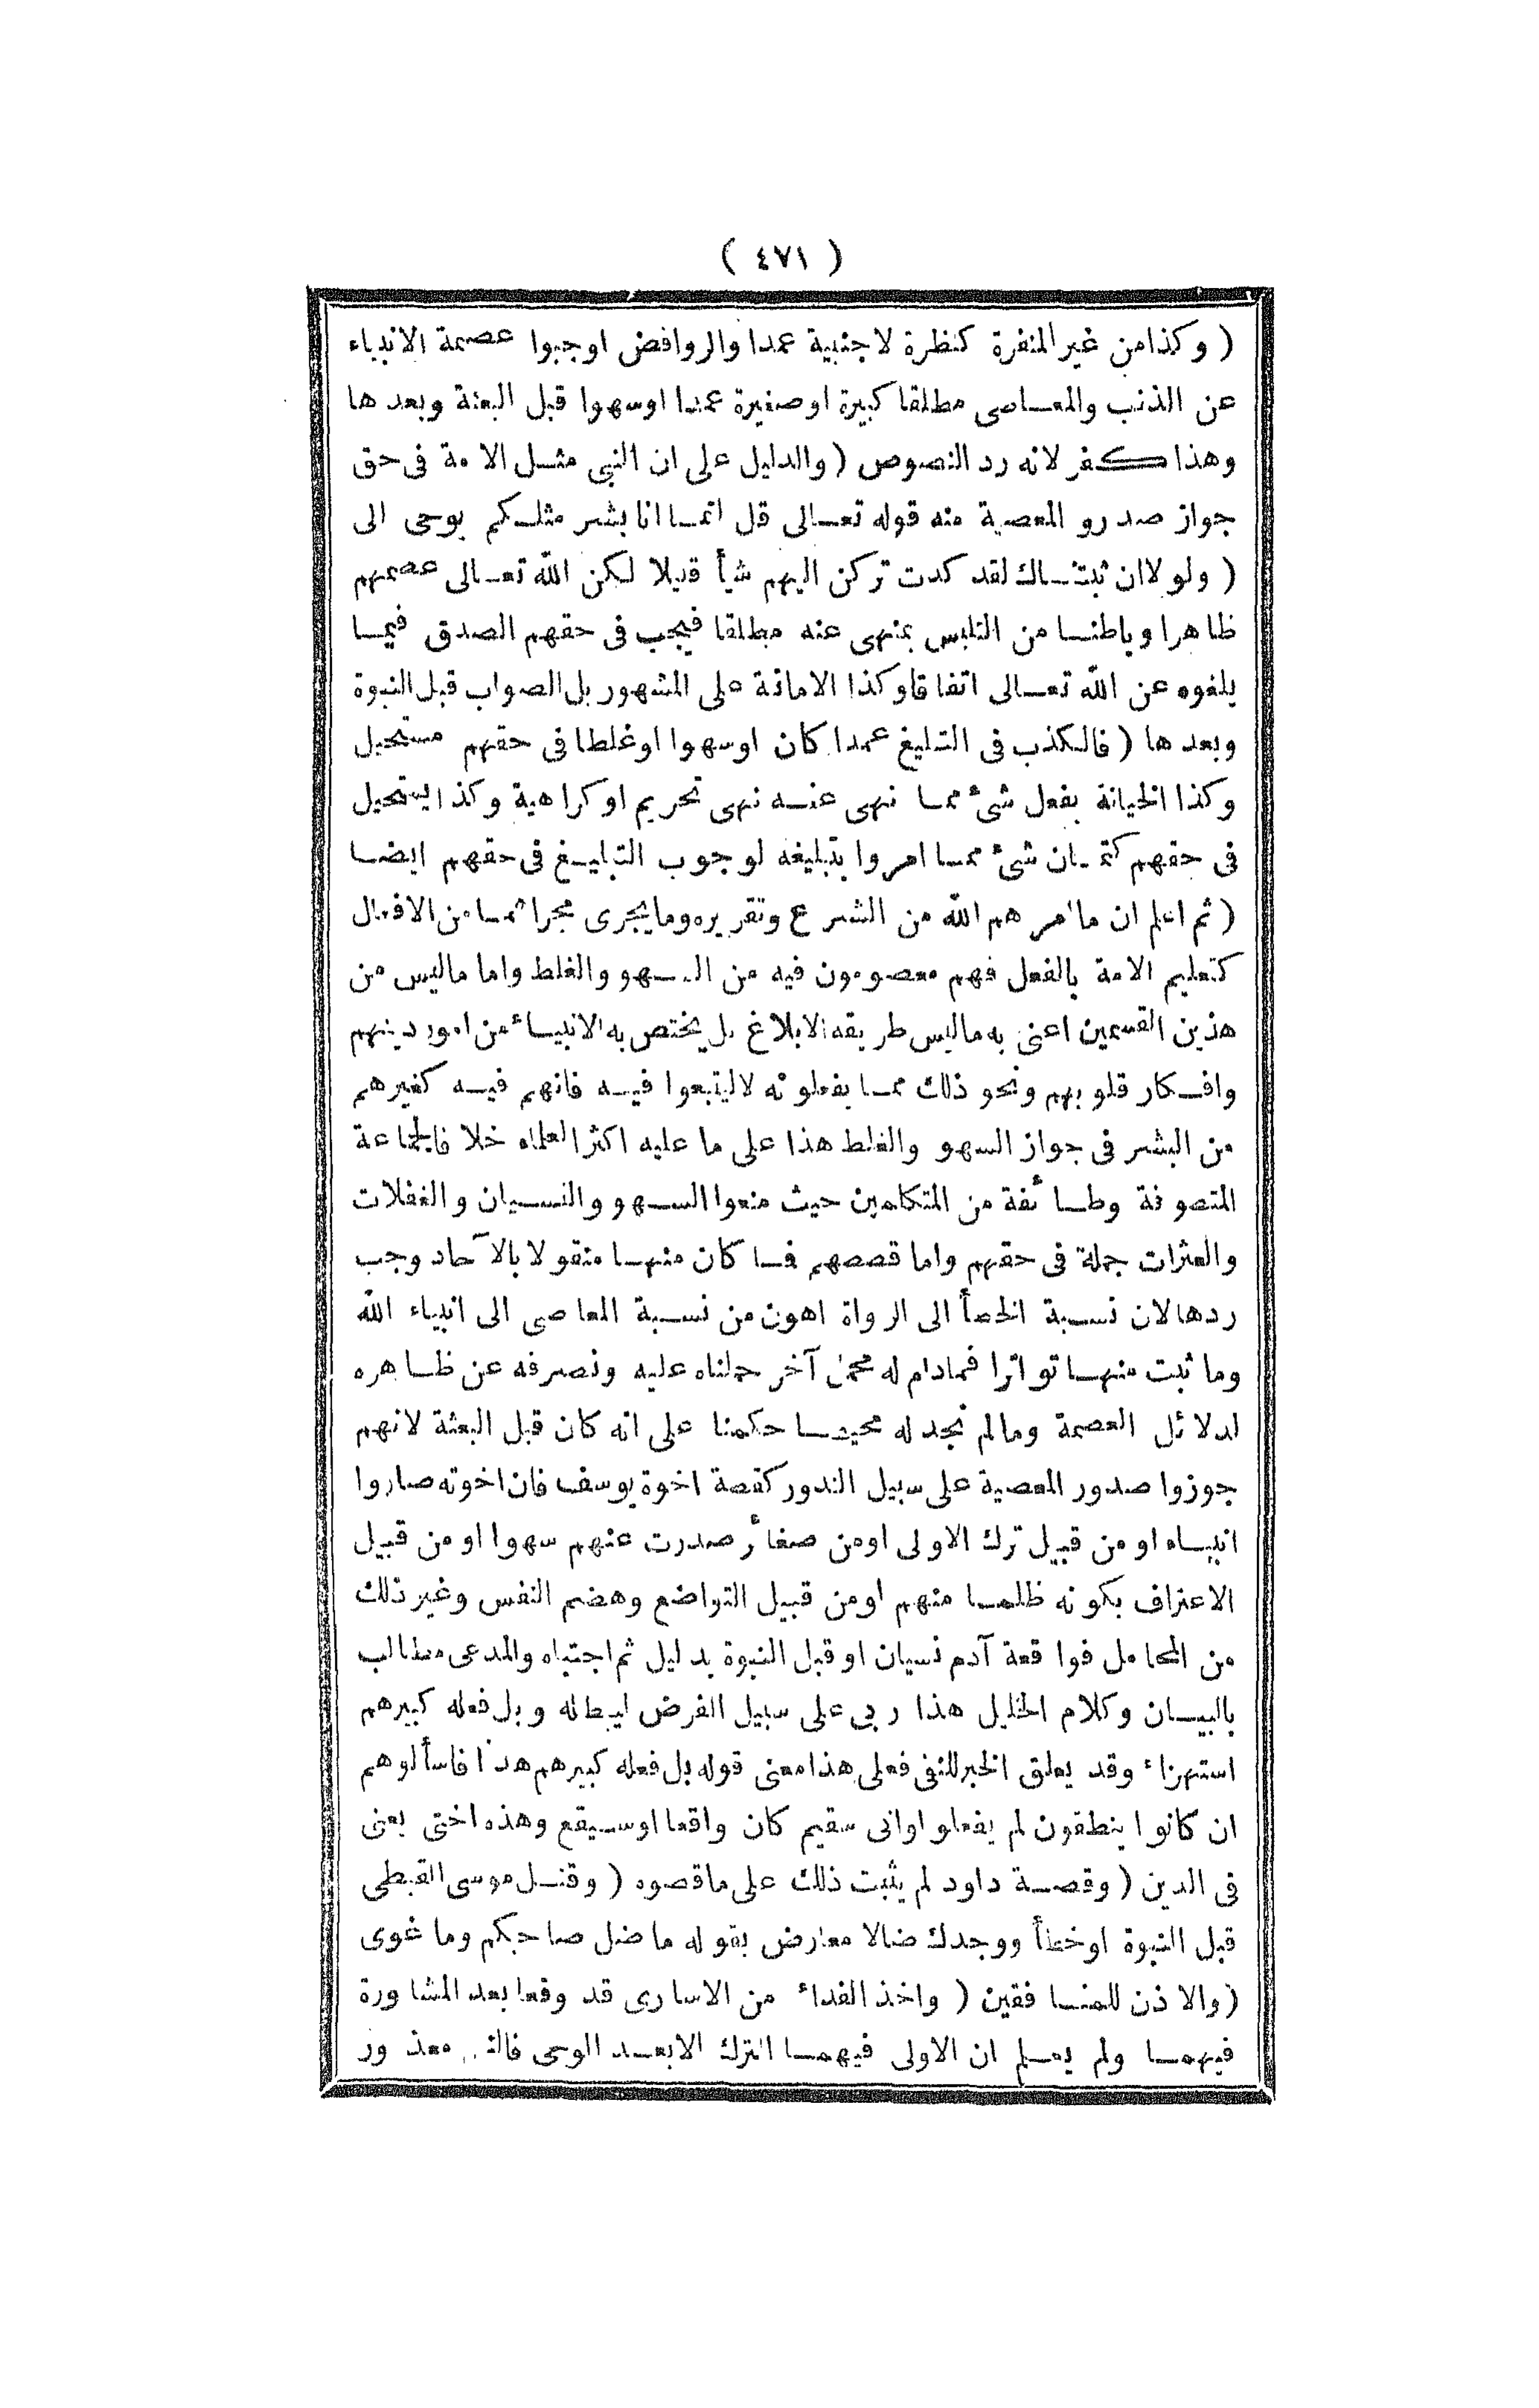 ( ٤٧١ )
( وكذا من غير المنفرة كنظرة لاجنبية عمدا والروافض اوجبوا عصمة الانبياء
عن الذنب والمعاصى مطلقا كبيرة او صغيرة عمدا اوسهوا قبل البعثة وبعدها
وهذا كفر لانه رد النصوص ( والدليل على ان النبى مثل الامة فى حق
جواز صدرو المعصية منه قوله تعالى قل انما انا بشر مثلكم يوحى الى
( ولولا ان ثبتناك لقد كدت تركن اليهم شيأ قليلا لكن الله تعالى عصمهم
ظاهرا وباطنا من التلبس بمنهى عنه مطلقا فيجب فى حقهم الصدق فيما
بلغوه عن الله تعالى اتفاقا وكذا الامانة على المشهور بل الصواب قبل النبوة
وبعدها ( فالكذب فى التبليغ عمدا كان اوسهوا اوغلطا فى حقهم مستحيل
وكذا الخيانة بفعل شئ مما نهى عنه نهى تحريم اوكراهية وكذا يستحيل
فى حقهم كتمان شئ مما امروا بتبليغه لوجوب التبليغ فى حقهم ايضا
( ثم اعلم ان ما امرهم الله من الشرع وتقريره وما يجرى مجراهما من الافعال
كتعليم الامة بالفعل فهم معصومون فيه من السهو والغلط واما ماليس من
هذين القسمين اعنى به ماليس طريقه الابلاغ بل يختص به الانبياء من امور دينهم
وافكار قلوبهم ونحو ذلك مما يفعلونه لا ليتبعوا فيه فانهم فيه كغيرهم
من البشر فى جواز السهو والغلط هذا على ما عليه اكثر العلماء خلافا لجماعة
المتصوفة وطائفة من المتكلمين حيث منعوا السهو والنسيان والغفلات
والعثرات جملة فى حقهم واما قصصهم فما كان منها منقولا بالآحاد وجب
ردها لان نسبة الخطأ الى الرواة اهون من نسبة المعاصى الى انبياء الله
وما ثبت منها تواترا فمادام له محمل آخر حملناه عليه ونصرفه عن ظاهره
لدلائل العصمة ومالم نجد له محيصا حكمنا على انه كان قبل البعثة لانهم
جوزوا صدور المعصية على سبيل الندور كقصة اخوة يوسف فان اخوته صاروا
انبياء او من قبيل ترك الاولى اومن صغائر صدرت عنهم سهوا او من قبيل
الاعتراف بكونه ظلما منهم اومن قبيل التواضع وهضم النفس وغير ذلك
من المحامل فواقعة آدم نسيان او قبل النبوة بدليل ثم اجتباه والمدعى مطالب
بالبيان وكلام الخليل هذا ربى على سبيل الفرض ليبطله وبل فعله كبيرهم
استهزاء وقد يعلق الخبر للنفى فعلى هذا معنى قوله بل فعله كبيرهم هذا فاسألوهم
ان كانوا ينطقون لم يفعلو اوانى سقيم كان واقعا اوسيقع وهذه اختى يعنى
فى الدين ( وقصة داود لم يثبت ذلك على ماقصوه ( وقتل موسى القبطى
قبل النبوة اوخطأ ووجدك ضالا معارض بقوله ما ضل صاحبكم وما غوى
( والاذن للمنافقين ( واخذ الفداء من الاسارى قد وقعا بعد المشاورة
فيهما ولم يعلم ان الاولى فيهما الترك الابعد الوحى معذور